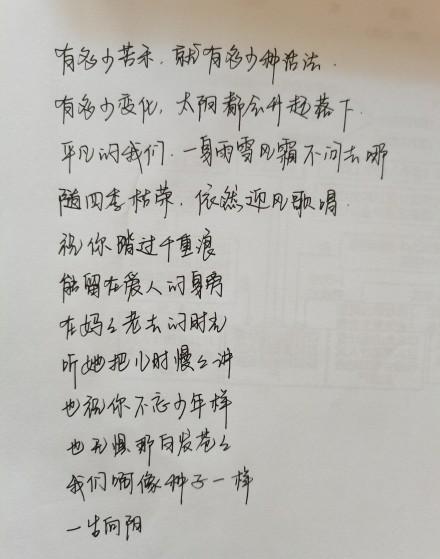 有多少苦乐，就有多少种活法．
有多少变化，太阳都会升起落下．
平凡的我们．一身雨雪风霜不问去哪
随四季枯荣，依然迎风歌唱．
祝你踏过千重浪
能留在爱人的身旁
在妈么老去的时光
听她把儿时慢么讲
也祝你不忘少年样
也无惧那白发苍么
我们啊像种子一样
一生向阳